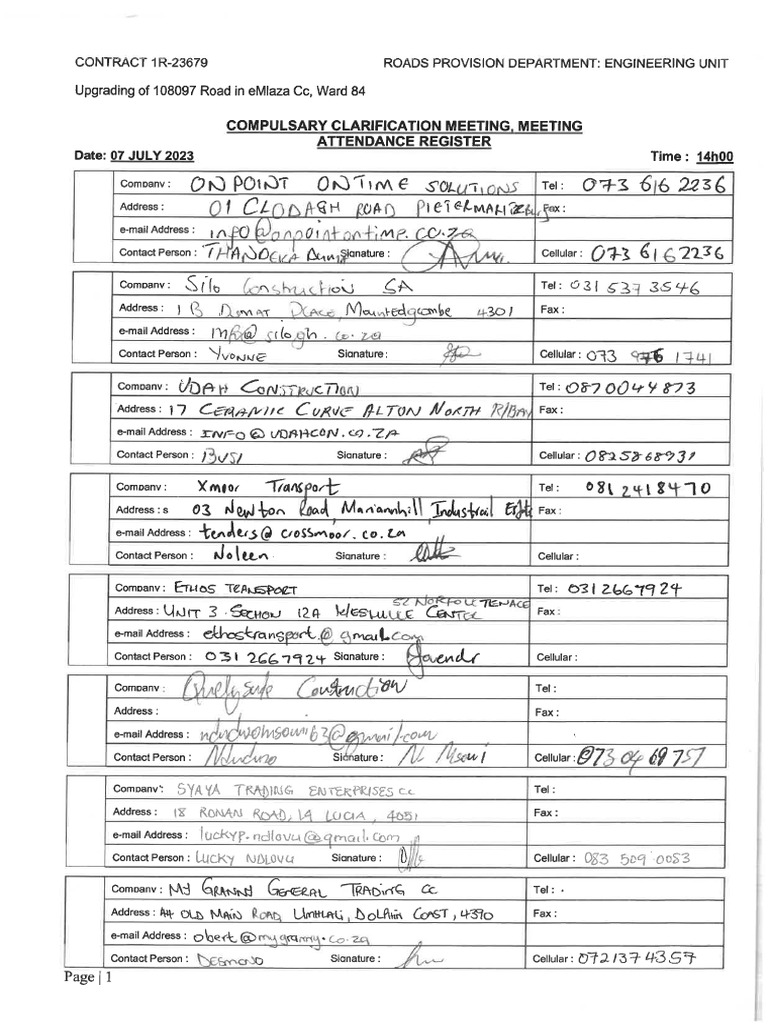 CONTRACT 1R-23679 ROADS PROVISION DEPARTMENT: ENGINEERING UNIT
Upgrading of 108097 Road in eMlaza Cc, Ward 84
COMPULSARY CLARIFICATION MEETING, MEETING
ATTENDANCE REGISTER
Date: 07 JULY 2023 Time : 14h00
Company : ON POINT ONTIME SOLUTIONS Tel : 073 616 2236
Address : 01 CLODAGH ROAD Fax :
e-mail Address : info@onpointontime.co.za
Contact Person : THANDEKA Signature : Cellular : 073 616 2236
Company : Silo Construction SA Tel : 031 537 3546
Address : 1B Place, Mountedgcombe 4301 Fax :
e-mail Address : info@silogh.co.za
Contact Person : YVONNE Signature : Cellular : 073 976 1741
Company : UDAH CONSTRUCTION Tel : 0870044873
Address : 17 CERAMIC CURVE ALTON NORTH R/BAY Fax :
e-mail Address : INFO@UDAHCON.CO.ZA
Contact Person : BUSI Signature : Cellular : 0825868931
Company : Xmoor Transport Tel : 081 2418470
Address : s 03 Newton Road, Mariannhill, Industrail Fax :
e-mail Address : tenders@crossmoor.co.za
Contact Person : Noleen Signature : Cellular :
Company : ETHOS TRANSPORT Tel : 031 2667924
52 NORFOLK TENACE
Address : UNIT 3 SECTION 12A CENTER Fax :
e-mail Address : ethostransport.@gmail.com
Contact Person : 031 2667924 Signature : Cellular :
Company : Construction Tel :
Address : Fax :
e-mail Address :
Contact Person : Nduduzo Signature : Cellular : 073 04 69 757
Company : SYAYA TRADING ENTERPRISES CC Tel :
Address : 18 RONAN ROAD, LA LUCIA, 4051 Fax :
e-mail Address : luckyp.ndlovu@gmail.com
Contact Person : LUCKY NDLOVU Signature : Cellular : 083 509 0053
Company : MY GRANNY GENERAL TRADING CC Tel :
Address : A4 OLD MAIN ROAD, UMHLALI, DOLPHIN COAST, 4390 Fax :
e-mail Address : obert@mygranny.co.za
Contact Person : DESMOND Signature : Cellular : 0721374357
Page | 1